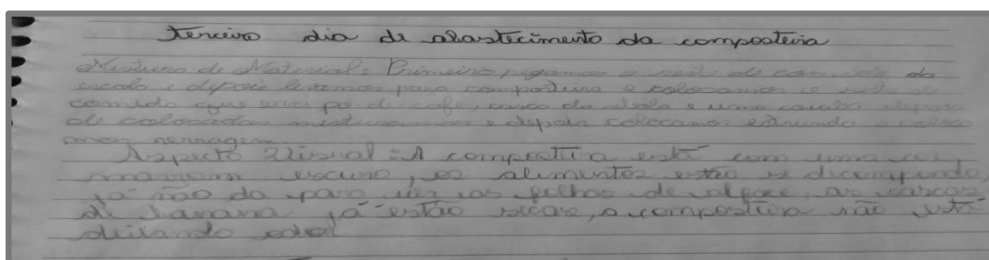 terceiro dia de abastecimento da composteira
Mistura de Material: Primeiro pegamos o resto de comida da
escola e depois levamos para composteira e colocamos o resto de
comida que era pó de café, casca de e uma depois
de colocadas misturamos e depois colocamos e
mos serragem
Aspecto Visual: A composteira está com uma cor
marrom escuro, os alimentos estão se decompondo,
já não da para ver as folhas de alface, as cascas
de banana já estão secas, a composteira não está
deitando odor